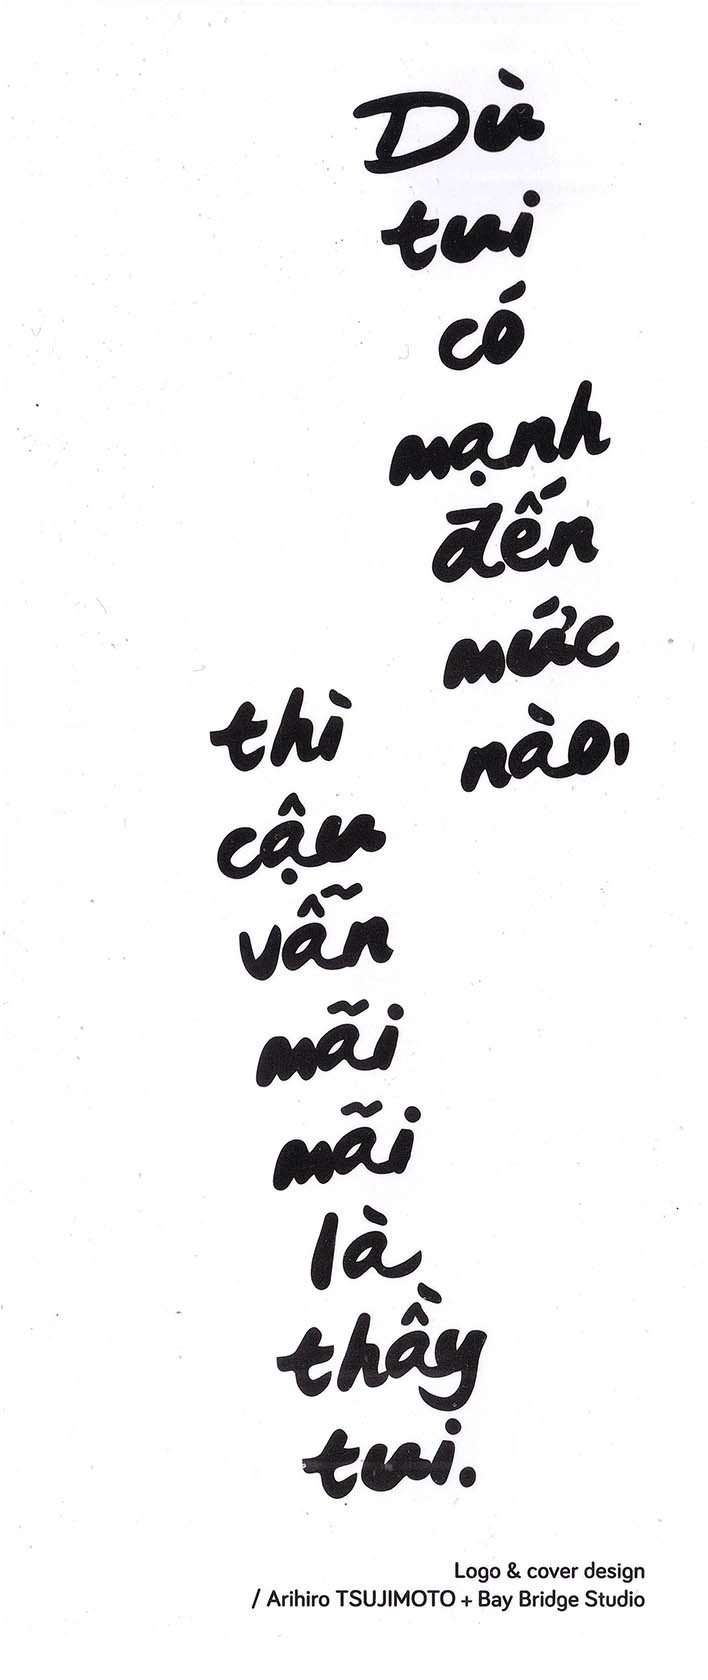 Dù
tui
có
mạnh
đến
mức
nào,
thì
cậu
vẫn
mãi
mãi
là
thầy
tui.
Logo & cover design
/ Arihiro TSUJIMOTO + Bay Bridge Studio